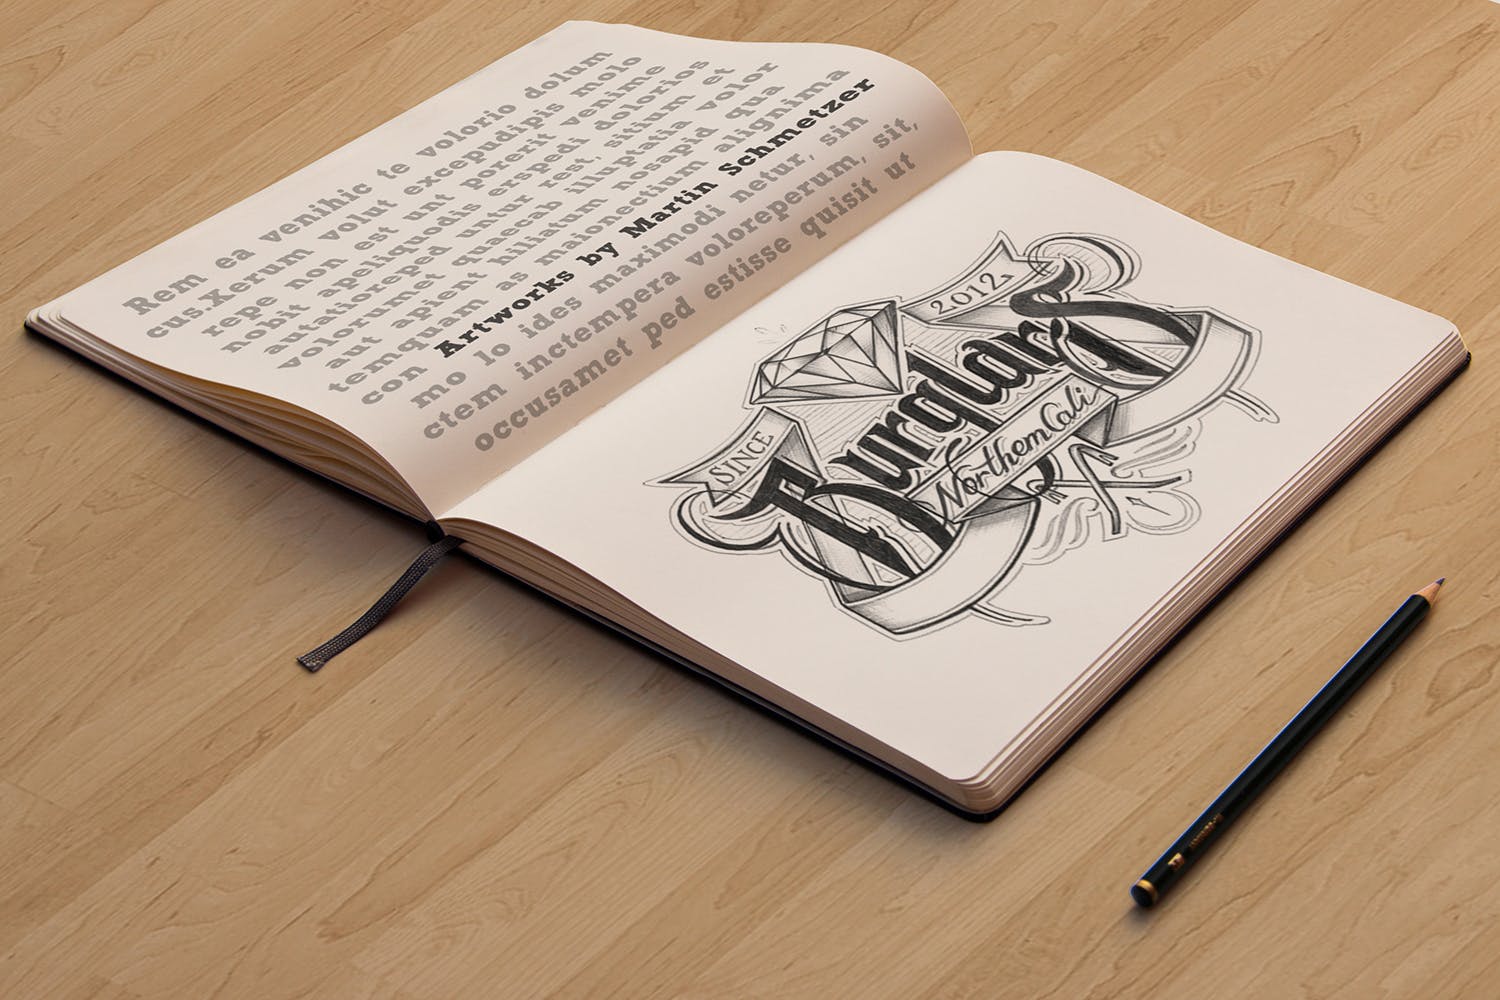 Rem ea venihic te volorio dolum
cus.Xerum volut excepudipis molo
repe non est unt porerit venime
nobit apeliquodis erspedi dolorios
autatiorepped untur rest, sitium et
volorumet quaecab illuptatia volor
aut apient hiliatium nosapid qua
temquam as maionectium alignima
con Artworks by Martin Schmetzer
mo lo ides maximodi netur, sin
ctem inctempera voloreperum, sit,
occusamet ped estisse quisit ut
SINCE
2012
Burglars
Northern Cali